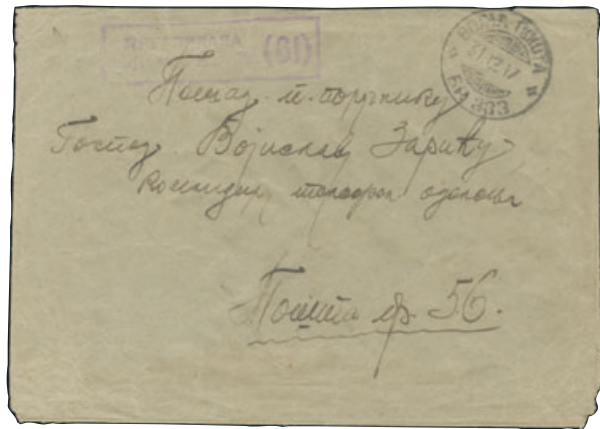 (61)
ВОЈНА ПОШТА
31.12.17
БР 333
Пешад. п. поручнику
Господ. Војиславу Зарићу
Командиру телефон. одељења
Пошта бр. 56.